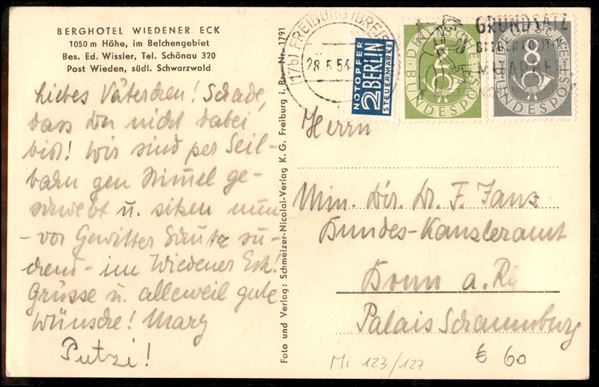 BERGHOTEL WIEDENER ECK
1050 m Höhe, im Belchengebiet
Bes. Ed. Wissler, Tel. Schönau 320
Post Wieden, südl. Schwarzwald
Liebes Väterchen! Schade,
dass du nicht dabei
bist! Wir sind per Seil-
bahn gen Himmel ge-
schwebt u. sitzen nun
- vor Gewitter Schutz su-
chend - im Wiedener Eck!
Grüsse u. alleweil gute
Wünsche! Mary
Putzi!
Foto und Verlag: Schmelzer-Nicolai-Verlag K. G. Freiburg i. Br. - Nr. 1791
(17b) FREIBURG (BREISGAU)
28.5.54
NOTOPFER
2 BERLIN
STEUERMARKE
BUNDESPOST
BUNDESPOST
GRUNDSATZ
Herrn
Min. Dir. Dr. F. Janz
Bundes-Kanzleramt
Bonn a. Rh
Palais Schaumburg
Mi 123/127
€ 60